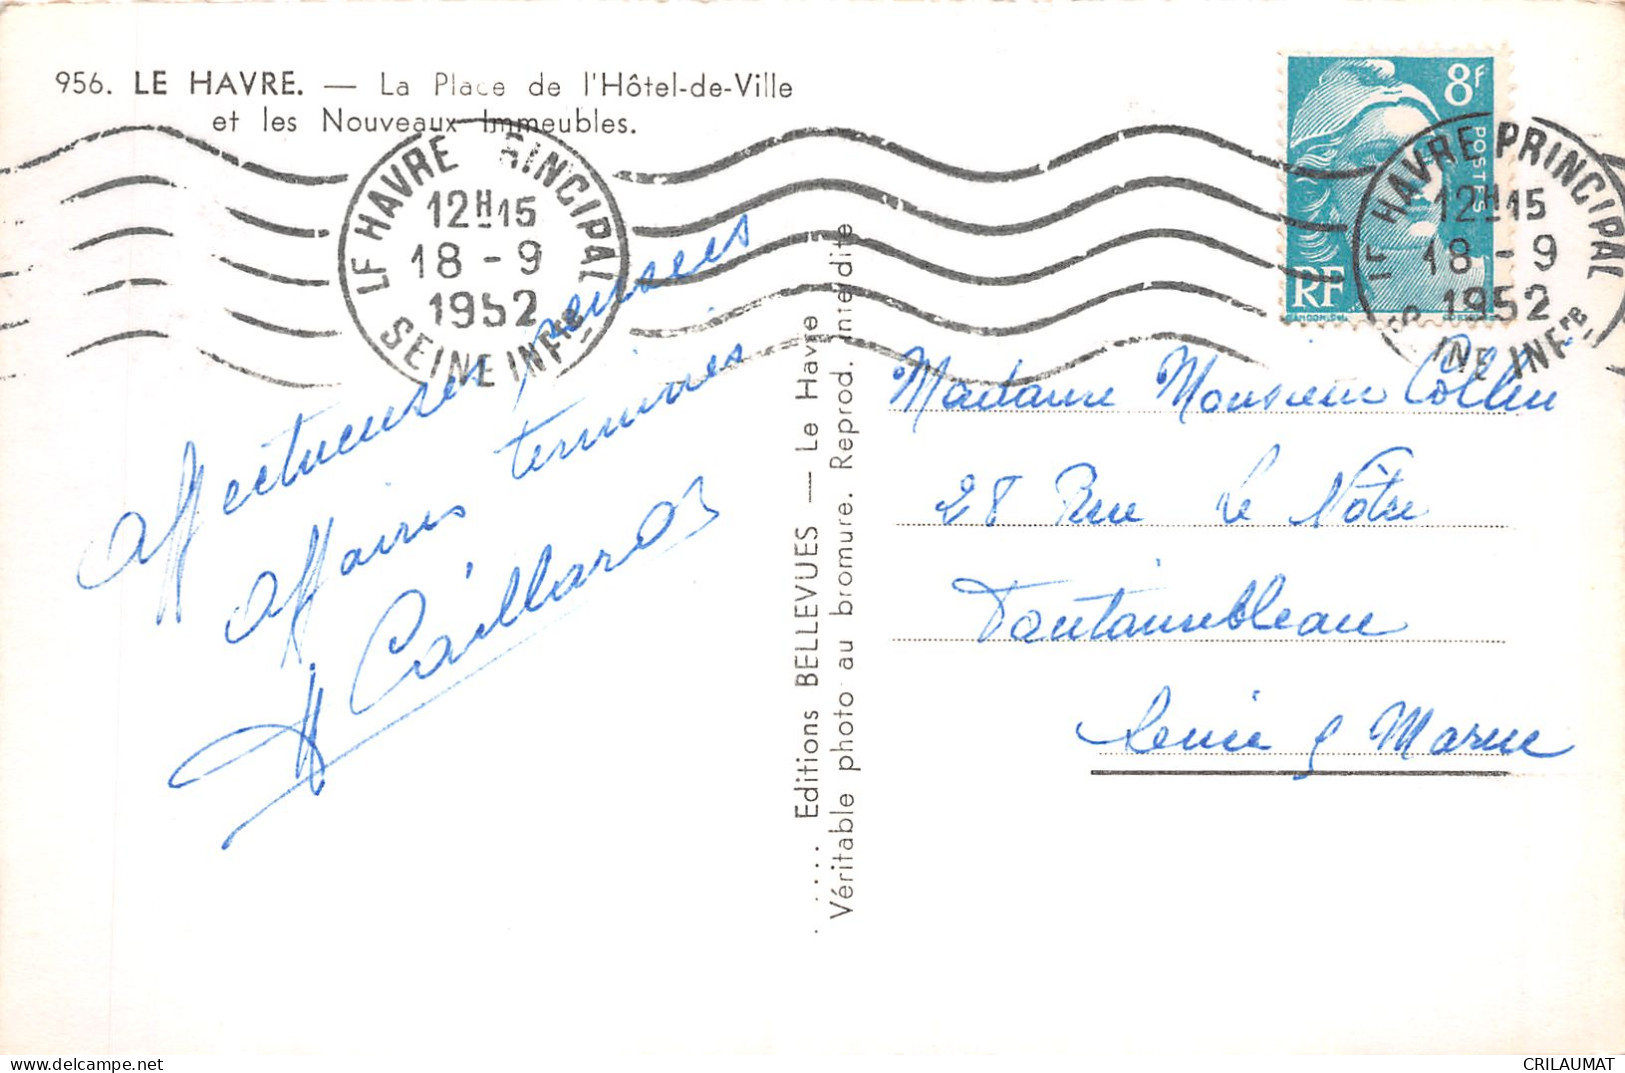 956. LE HAVRE. — La Place de l'Hôtel-de-Ville
et les Nouveaux Immeubles.
LE HAVRE PRINCIPAL
12H15
18 - 9
1952
SEINE INFRE
8F
POSTES
RF
GANDON
LE HAVRE PRINCIPAL
12H15
18 - 9
1952
INE INF
Affectueuses pensées
Affaires terminées
Caillard
Editions BELLEVUES — Le Havre
Véritable photo au bromure. Reprod. interdite
Madame Monsieur Collin
28 Rue Le Nôtre
Fontainebleau
Seine & Marne
CRILAUMAT